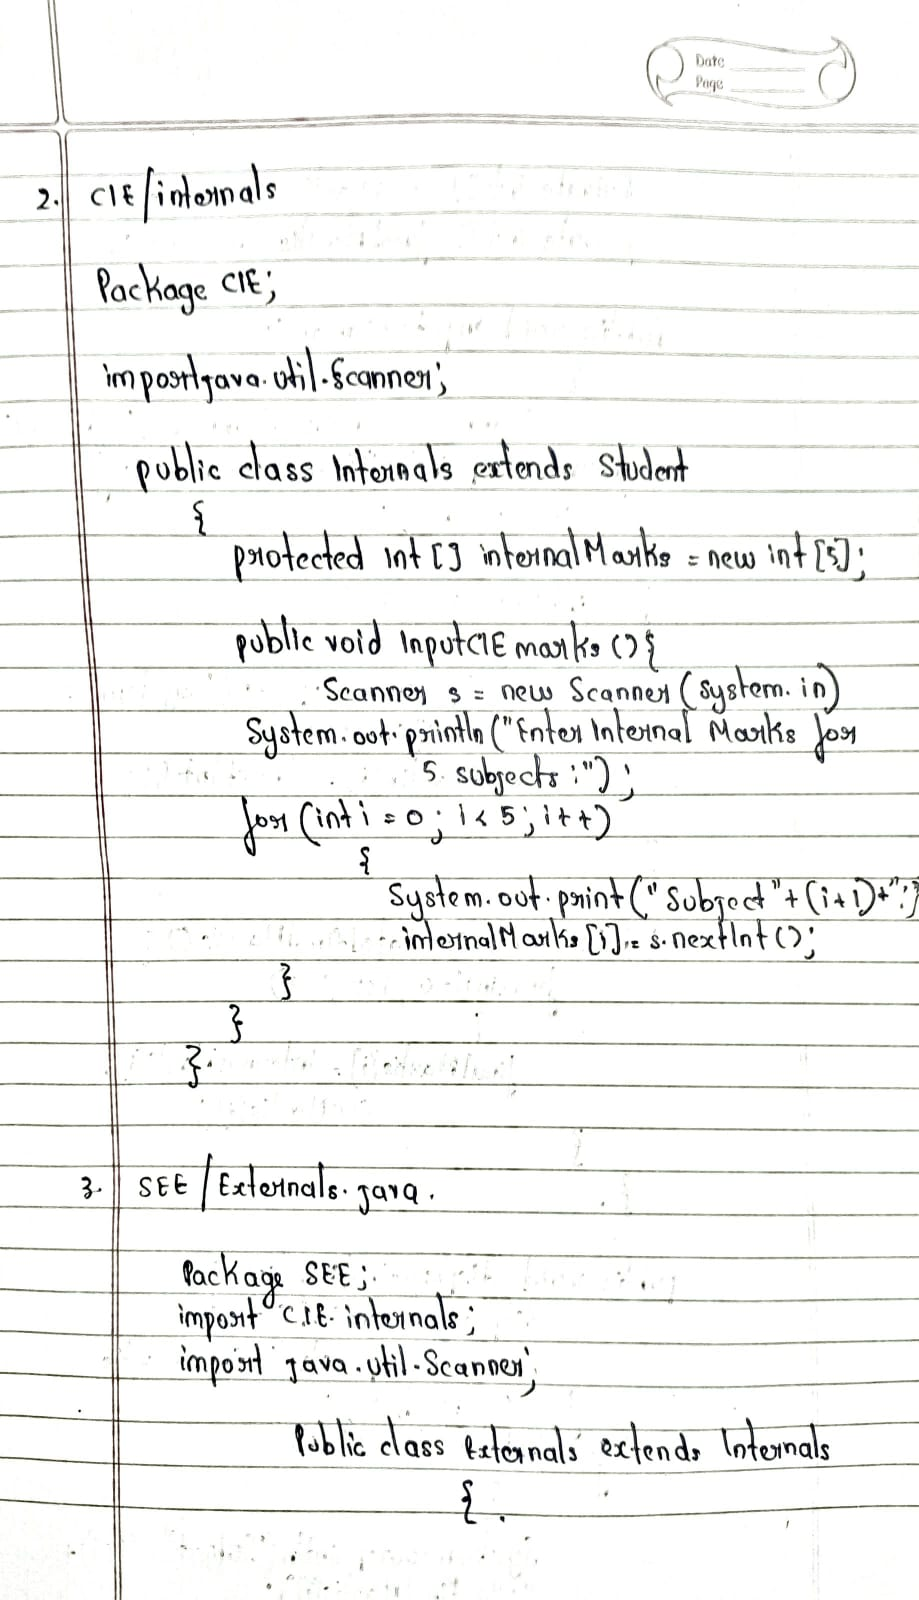 Date
Page
2. CIE/internals
Package CIE;
import java.util.Scanner;
public class Internals extends Student
{
protected int [] internalMarks = new int [5];
public void InputCIE marks () {
Scanner s = new Scanner (system.in)
System.out.println ("Enter Internal Marks for
5 subjects :");
for (int i = 0; i < 5; i++)
{
System.out.print (" Subject "+ (i+1)+":
internalMarks [i] = s.nextInt ();
}
}
}
3. SEE / Externals.java.
Package SEE;
import C.I.E. internals;
import java.util.Scanner;
Public class Externals extends Internals
{